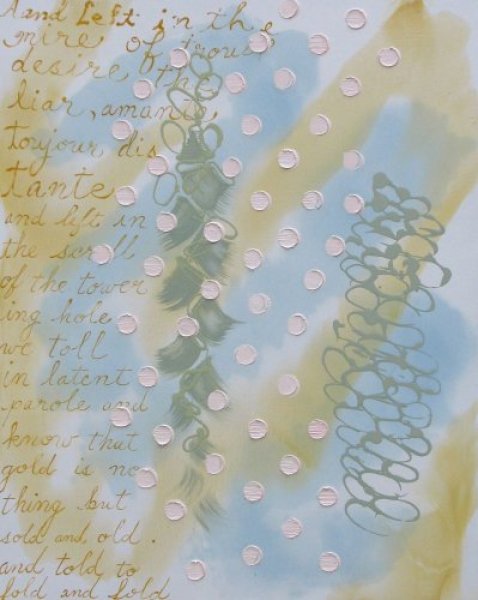 and Left in the
mire of
desire, the
liar, amante,
toujour dis
tante
and left in
the scroll
of the tower
ing hole
we toll
in latent
parole and
know that
gold is no
thing but
sold and old.
and told to
fold and fold